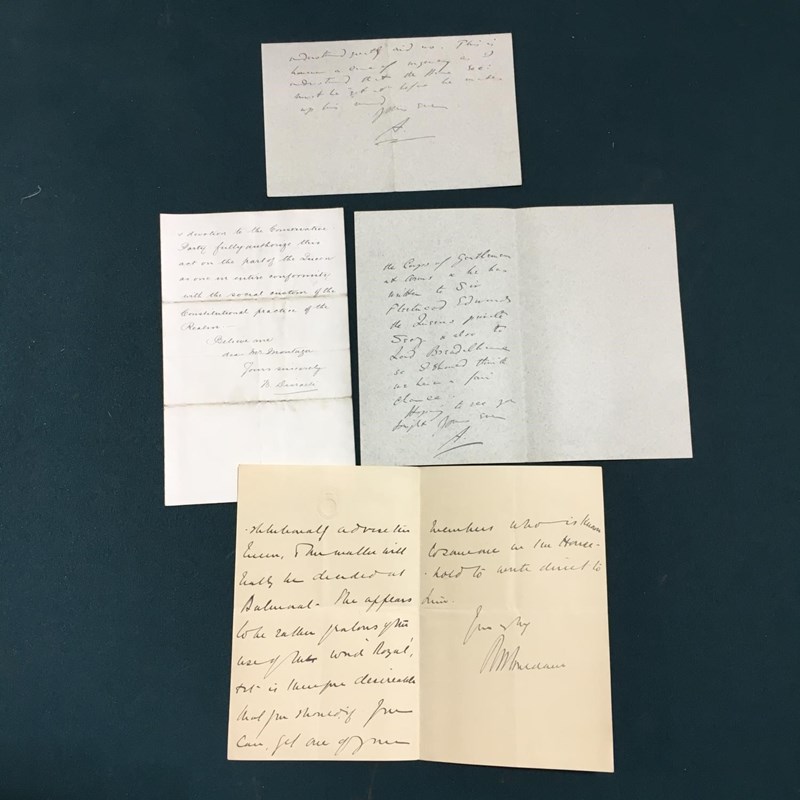 understand greatly aid us. This is
a case of urgency as I
understand that the
must be got at before he makes
up his mind
Yours ever
A.
& devotion to the Conservative
Party fully authorize this
act on the part of the Queen
as one in entire conformity
with the social custom & the
Constitutional practice of the
Realm —
Believe me
dear Mr Montagu
Yours sincerely
the Corps of Gentlemen
at Arms & he has
written to Sir
Fleetwood Edwards
the Queens private
Secy & also to
Lord Breadalbane
so I should think
we have a fair
chance.
Hoping to see you
tonight Yours ever
A.
-stitutionally advise the
Queen, & the matter will
be decided at
Balmoral - She appears
to be rather jealous of the
use of the word 'Royal',
& it is therefore desireable
that you should, if you
can, get one of your
members who is known
to someone in the House-
-hold to write direct to
him.